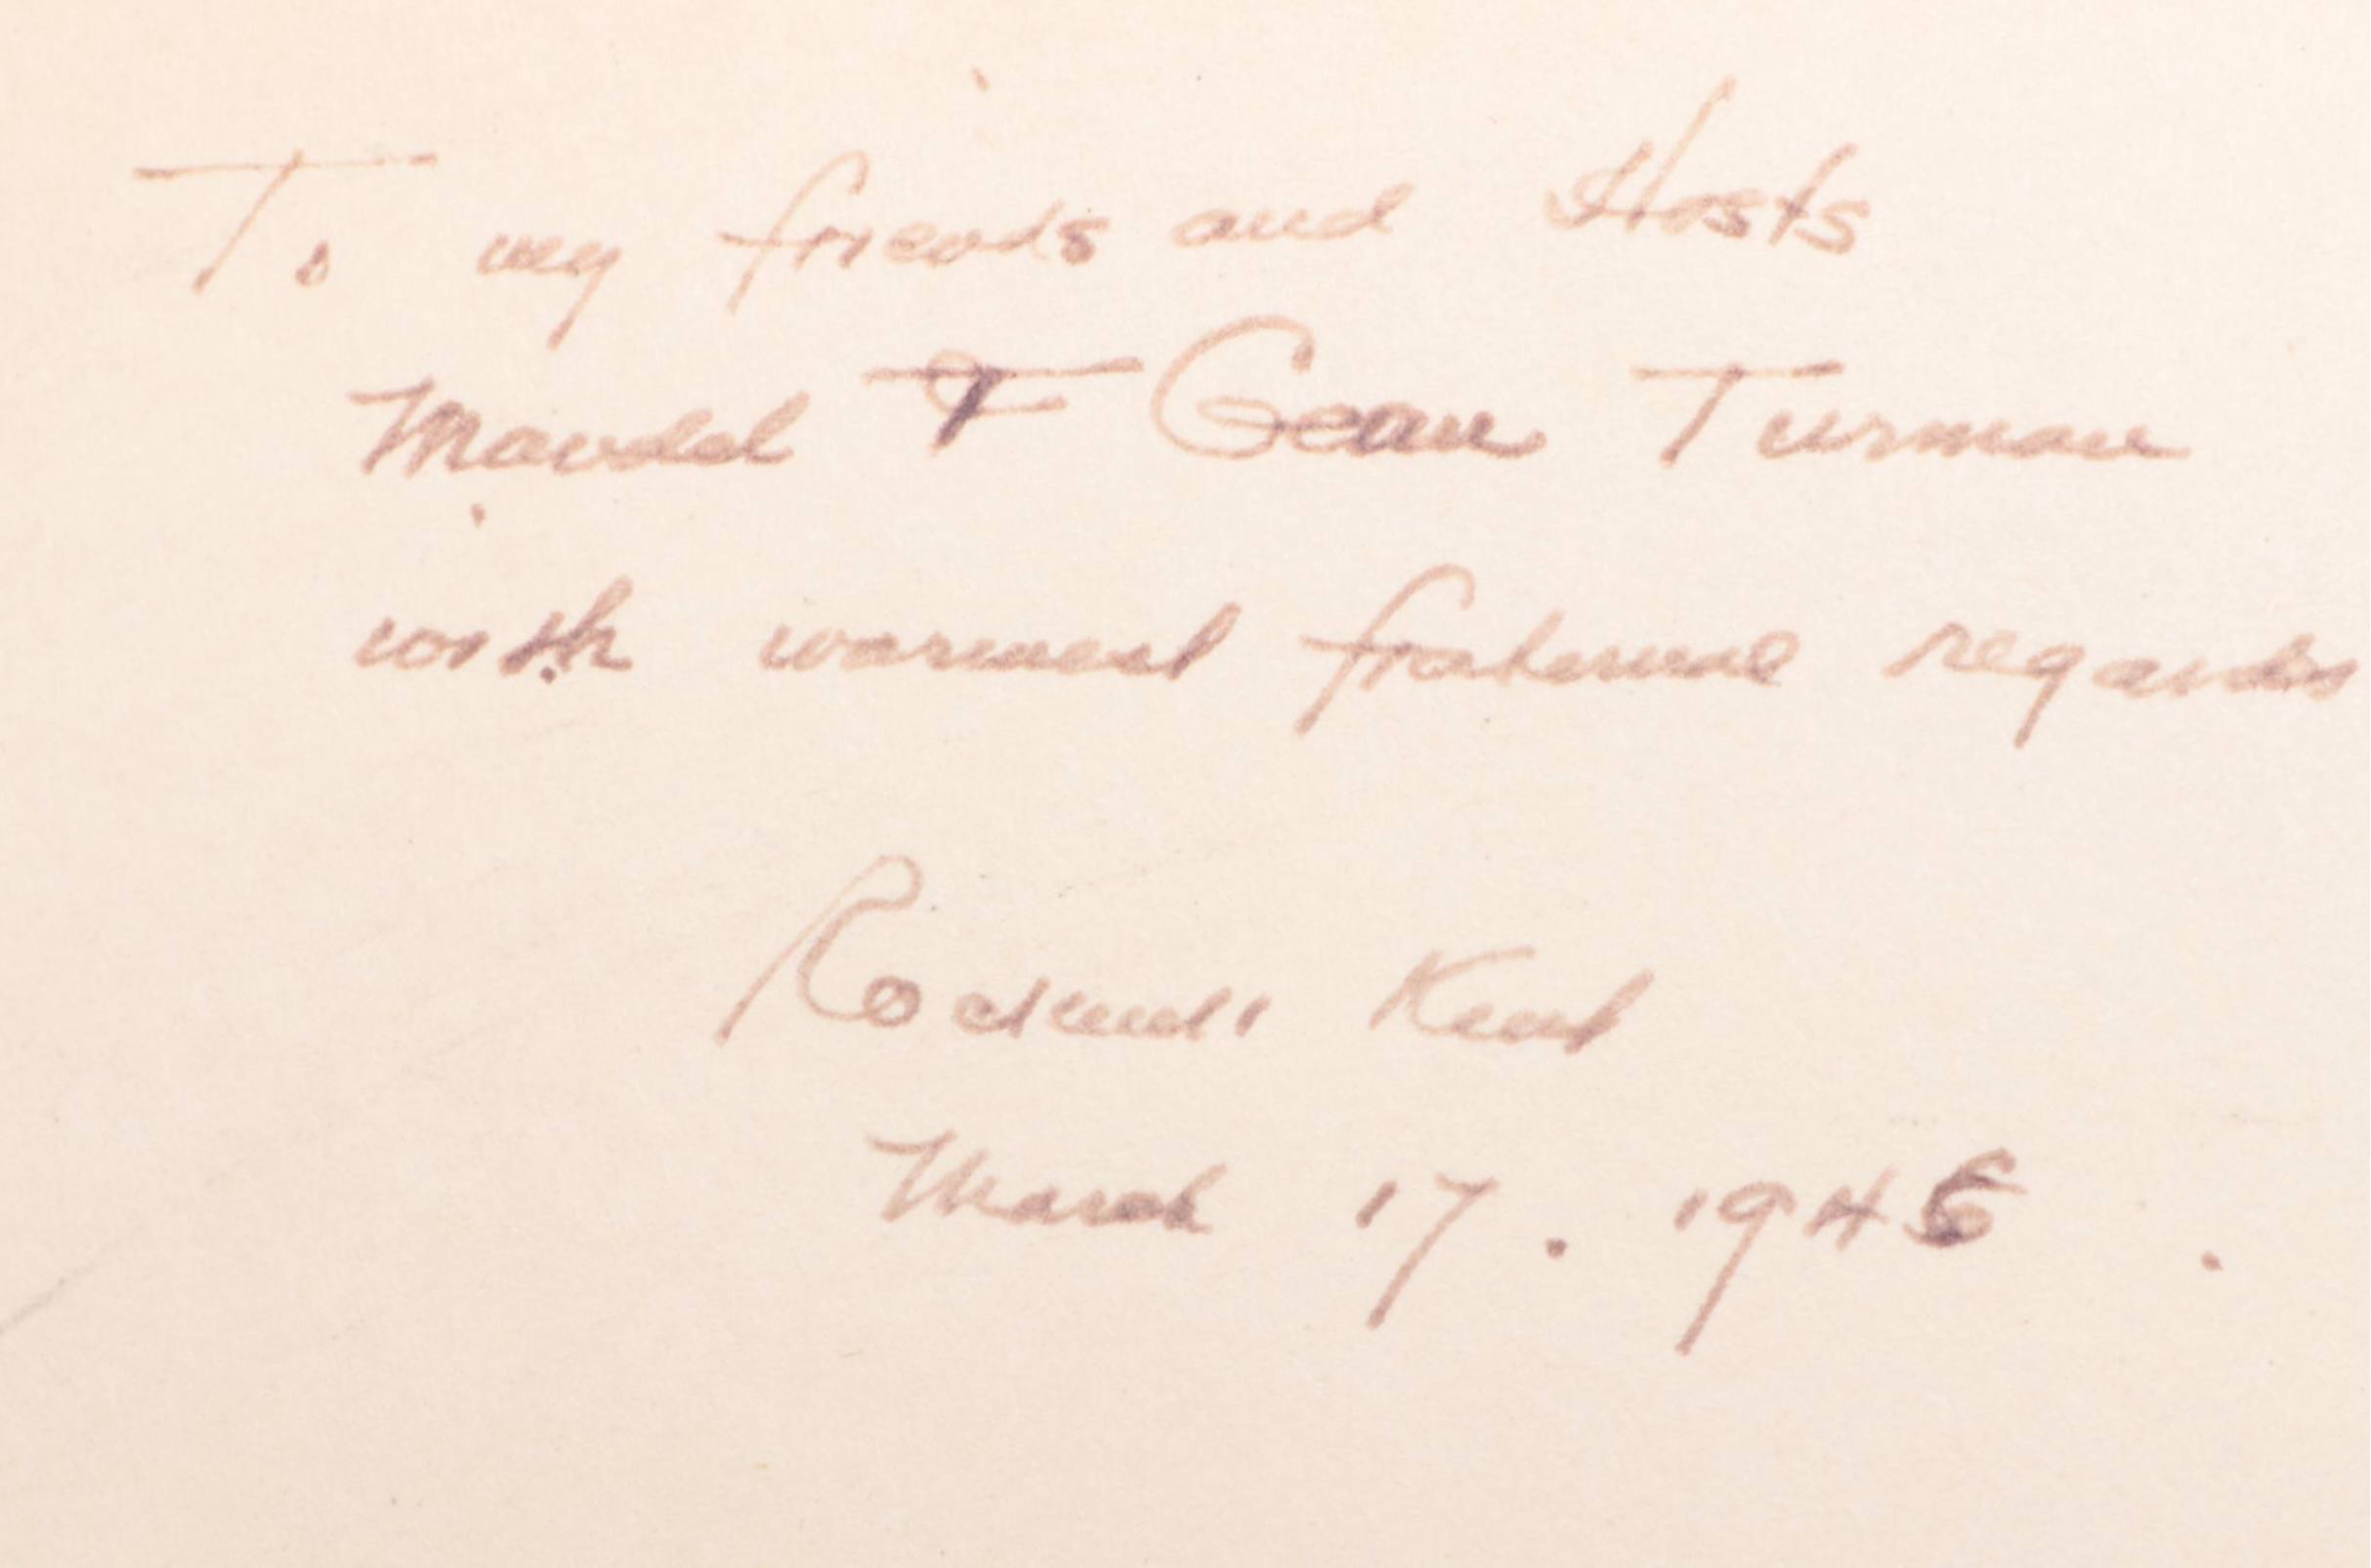 To my friends and Hosts
Mandel & Gean Turman
with warmest fraternal regards
Rockwell Kent
March 17. 1946